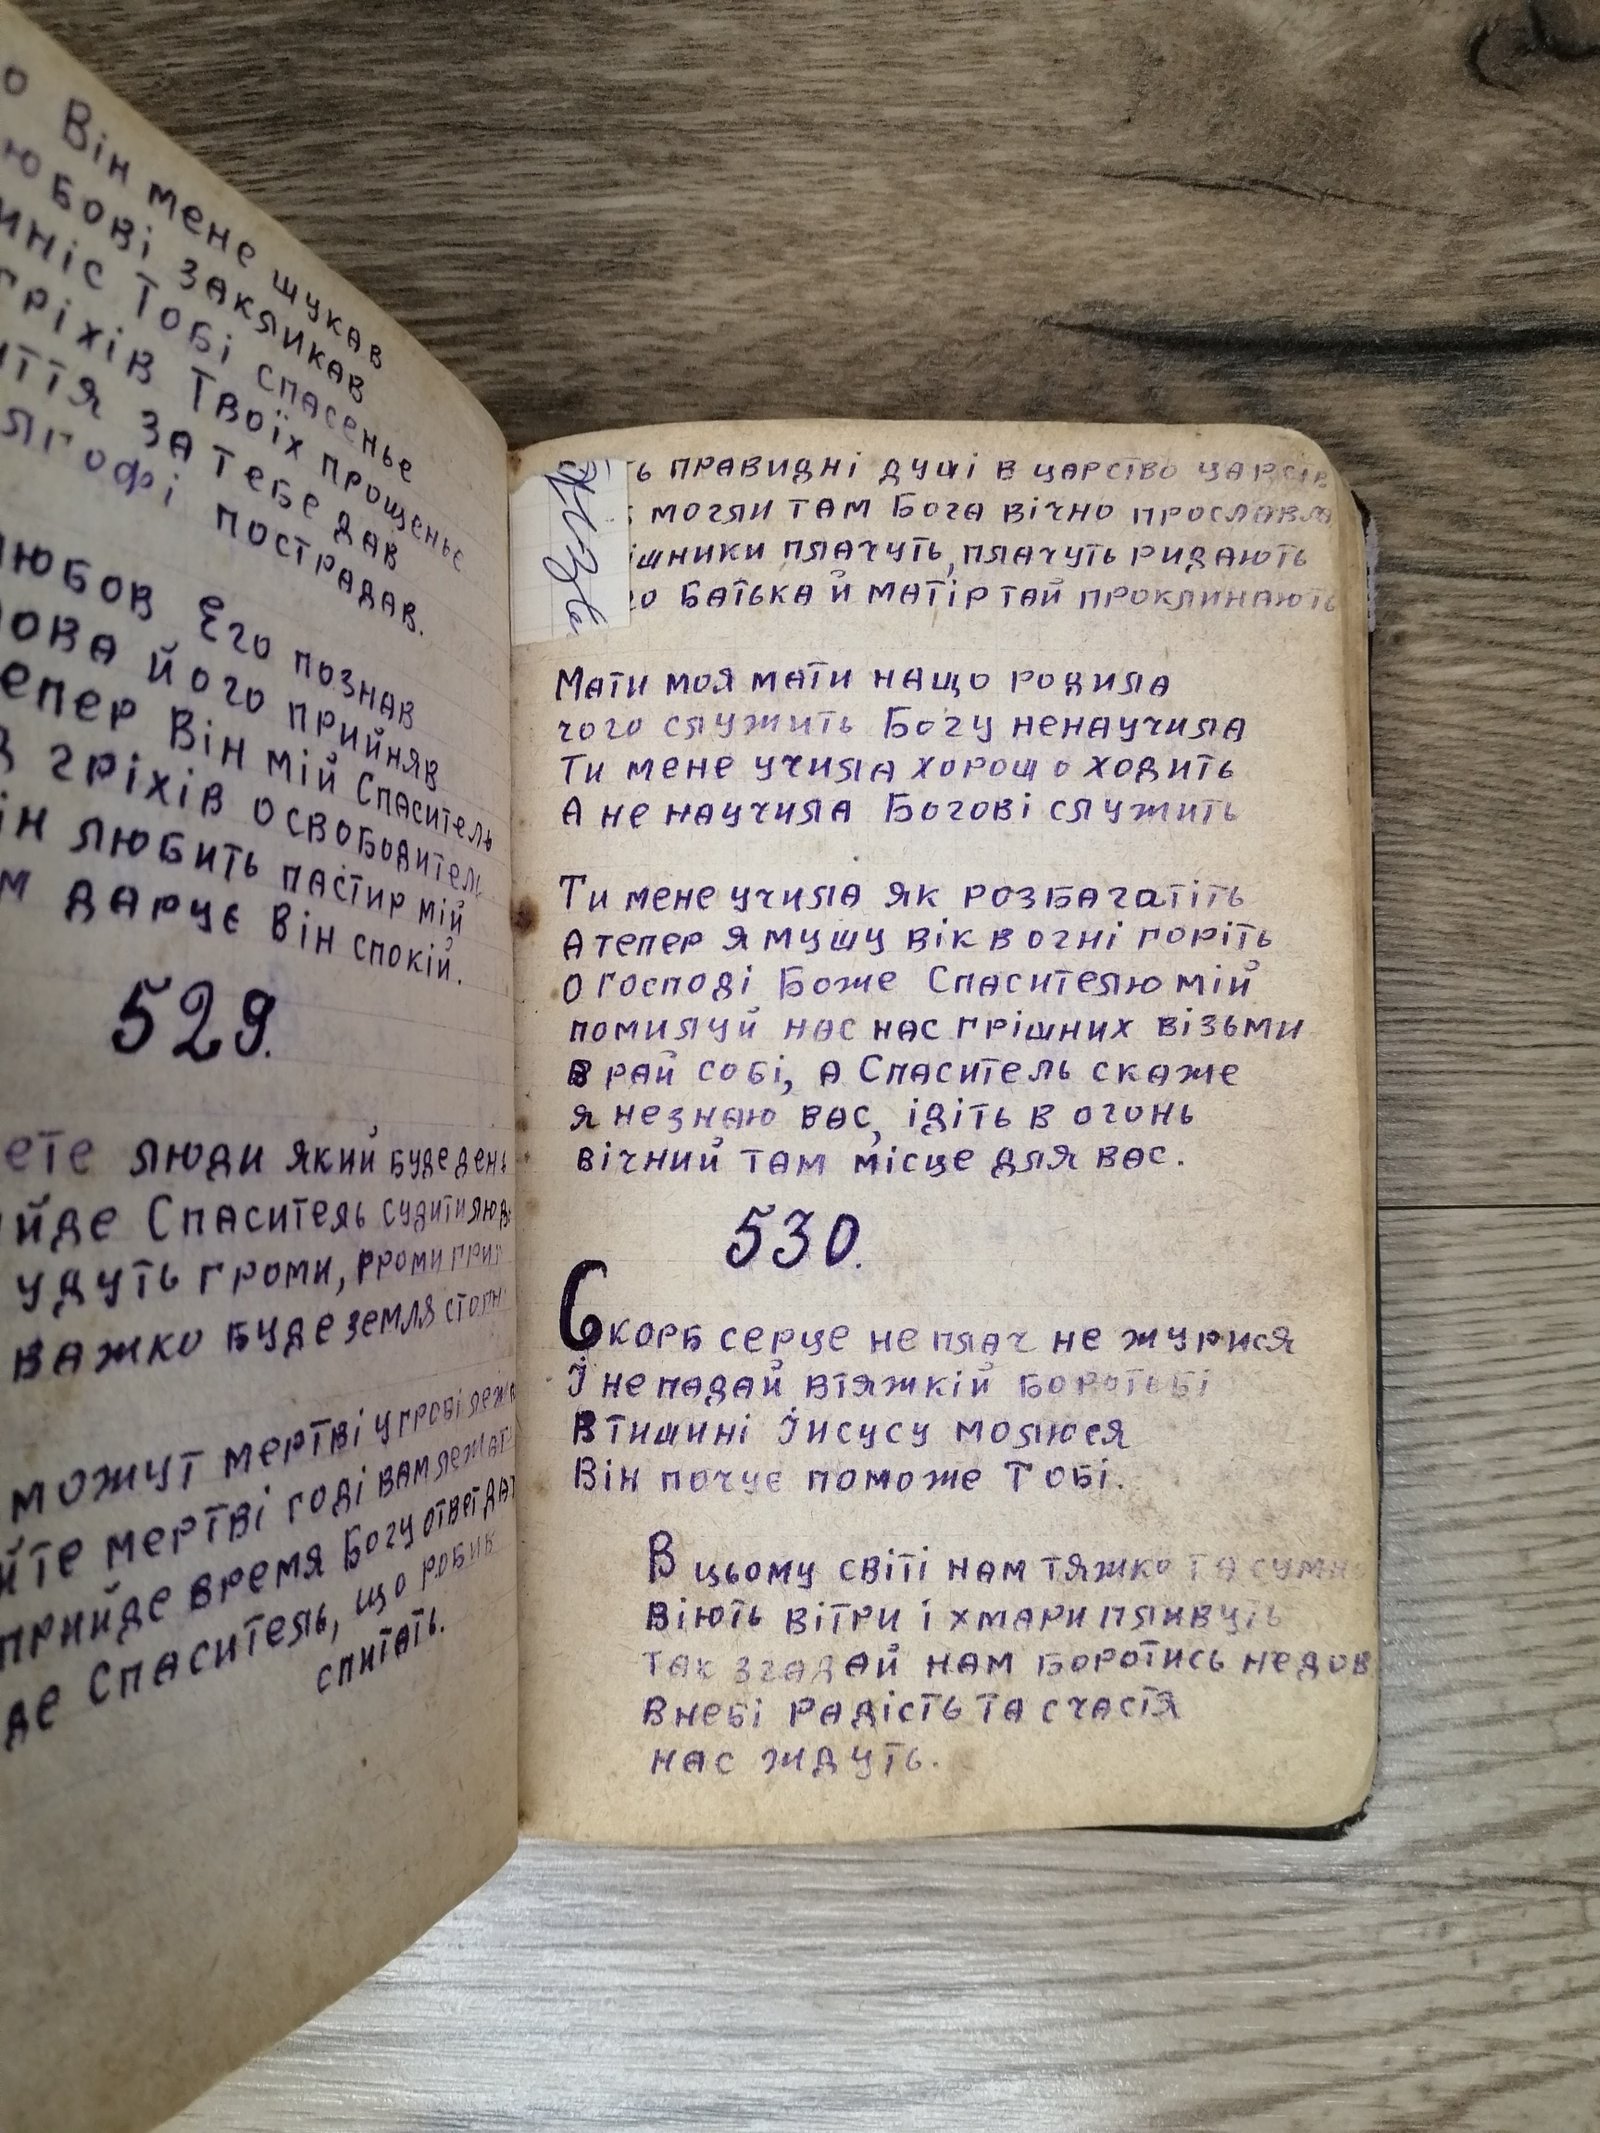 о Він мене шукав
юбові закликав
иніс Тобі спасеньє
гріхів Твоїх прощеньє
иття за тебе дав
лгофі пострадав.
любов Его познав
лова його прийняв
епер Він мій Спаситель
гріхів освободитель
ін любить пастир мій
м дарує Він спокій.
529.
ете люди який буде день
йде Спаситель судити люд
удуть громи, громи грим
важко буде земля стогн
можут мертві у гробі лежа
йте мертві годі вам лежат
прийде время Богу ответ дат
де Спаситель, що робив
спитать.
ть правидні душі в царство царств
могли там Бога вічно прославля
ішники плачуть, плачуть ридають
го батька й матір тай проклинають
Мати моя мати нащо родила
чого служить Богу ненаучила
Ти мене учила хорошо ходить
А не научила Богові служить
Ти мене учила як розбагатіть
А тепер я мушу вік в огні горіть
О Господі Боже Спасителю мій
помилуй нас нас грішних візьми
в рай собі, а Спаситель скаже
я незнаю вас, ідіть в огонь
вічний там місце для вас.
530.
Скорб серце не плач не журися
І не падай втяжкій боротьбі
В тишині Ісусу молюся
Він почує поможе Тобі.
В цьому світі нам тяжко та сумно
Віють вітри і хмари пливуть
Так згадай нам боротись недов
Внебі радість та счастя
нас ждуть.